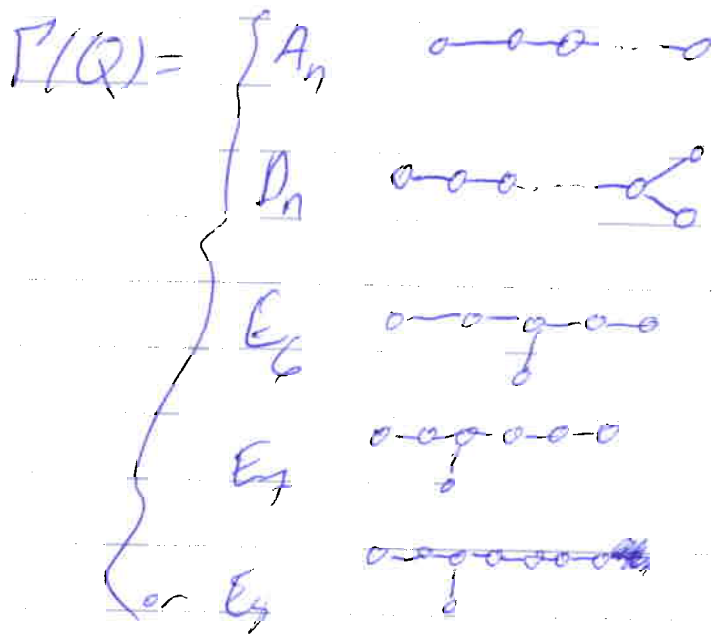 Γ(Q) = { A_n
D_n
E_6
E_7
or E_8